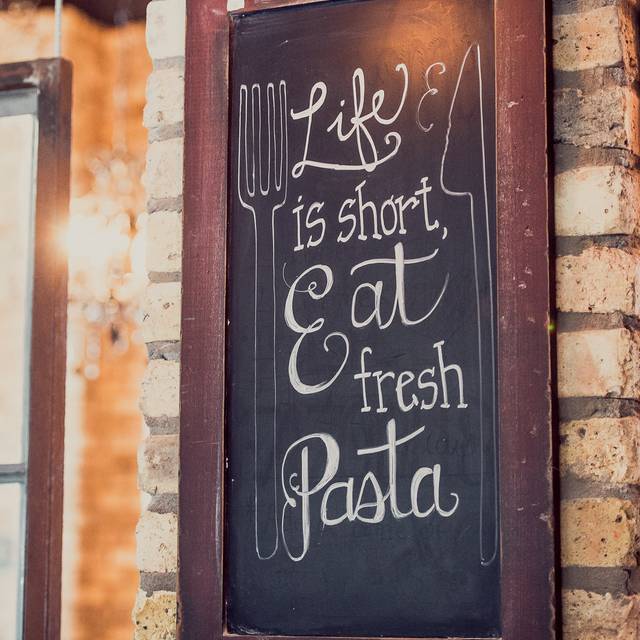 Life
is short,
Eat
fresh
Pasta